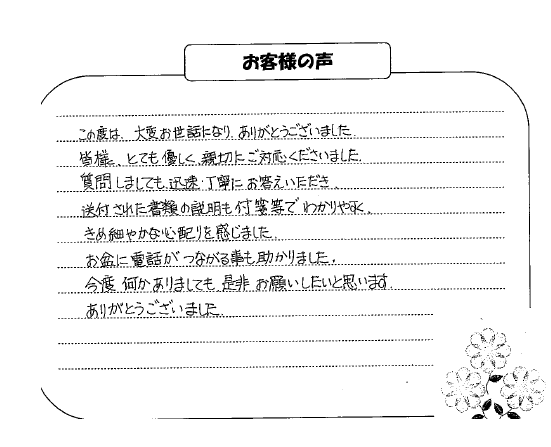 お客様の声
この度は、大変お世話になり、ありがとうございました。
皆様、とても優しく、親切にご対応くださいました。
質問しましても、迅速、丁寧にお答えいただき、
送付された書類の説明も付箋等でわかりやすく、
きめ細やかな心配りを感じました。
お盆に電話がつながる事も助かりました。
今度、何かありましても、是非お願いしたいと思います。
ありがとうございました。